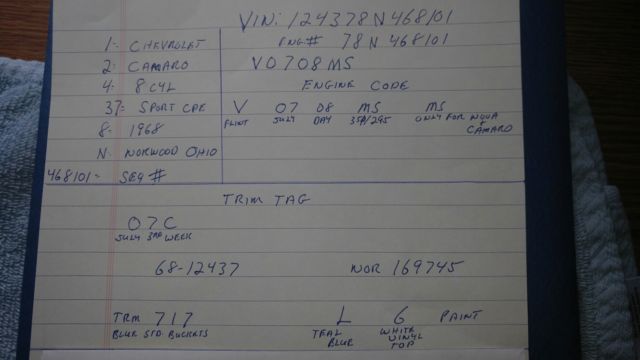 VIN: 124378N468101
ENG# 78N 468101
V0708MS
ENGINE CODE
V 07 08 MS MS
FLINT JULY DAY 350/295 ONLY FOR NOVA + CAMARO
1- CHEVROLET
2- CAMARO
4- 8 CYL
37- SPORT CPE
8- 1968
N- NORWOOD OHIO
468101- SEQ #
TRIM TAG
07C
JULY 3RD WEEK
68-12437 NOR 169745
TRM 717 L 6 PAINT
BLUE STD. BUCKETS TEAL BLUE WHITE VINYL TOP